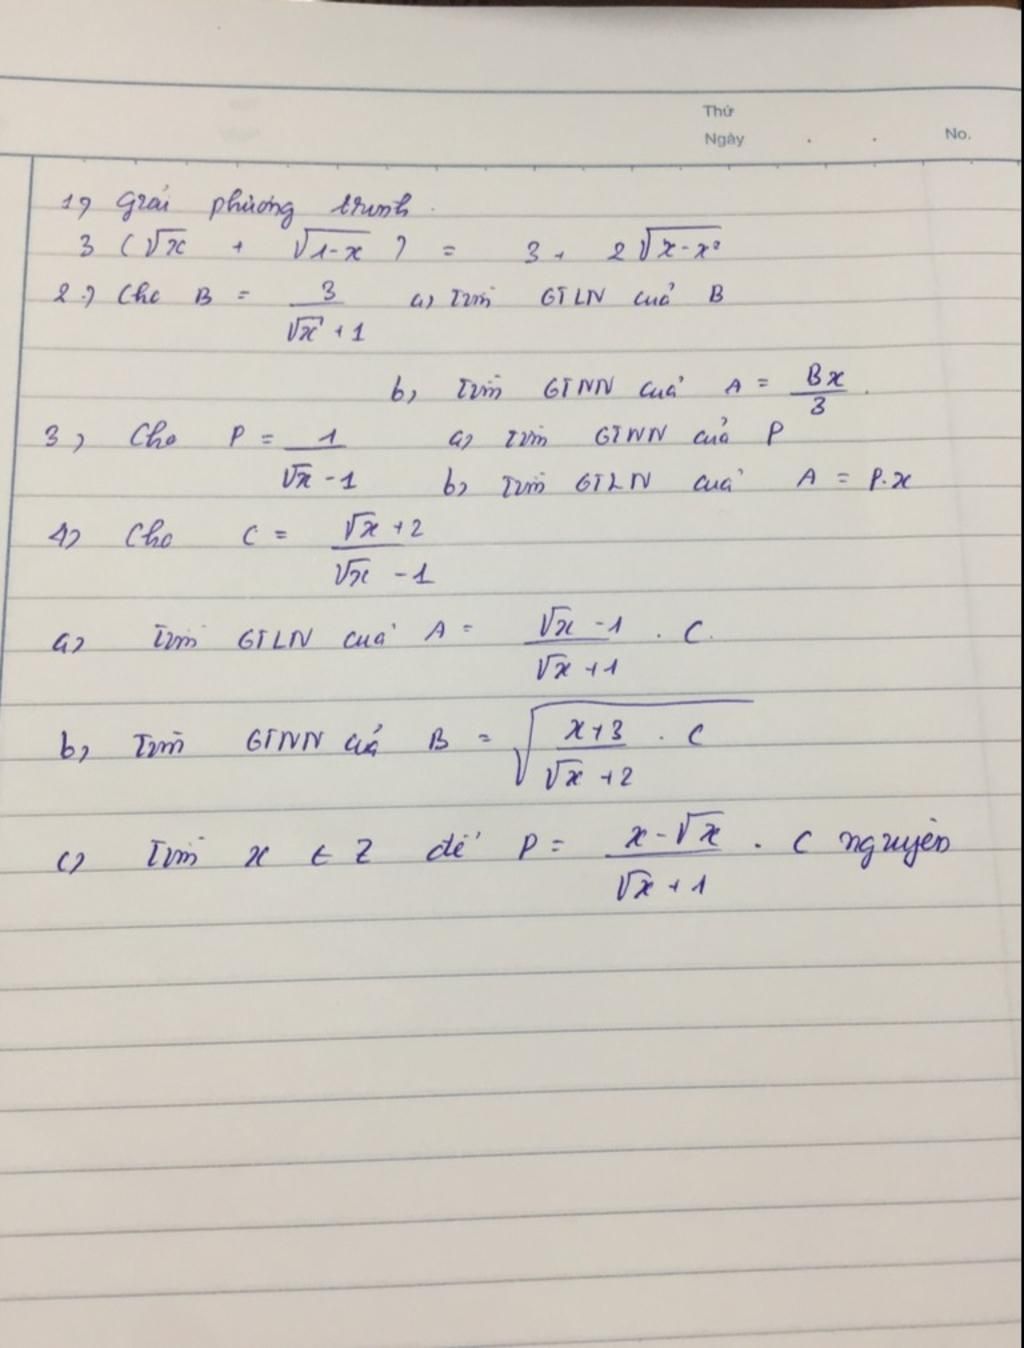 Thứ
Ngày . . No.
1) Giải phương trình.
3 (√x + √(1-x)) = 3 + 2√(x-x²)
2.) Cho B = 3/(√x + 1) a) Tìm GTLN của B
b) Tìm GTNN của A = Bx/3.
3) Cho P = 1/(√x - 1) a) Tìm GTNN của P
b) Tìm GTLN của A = P.x
4) Cho C = (√x + 2)/(√x - 1)
a) Tìm GTLN của A = (√x - 1)/(√x + 1) . C.
b) Tìm GTNN của B = √((x+3)/(√x + 2) . C)
c) Tìm x ∈ Z để P = (x - √x)/(√x + 1) . C nguyên